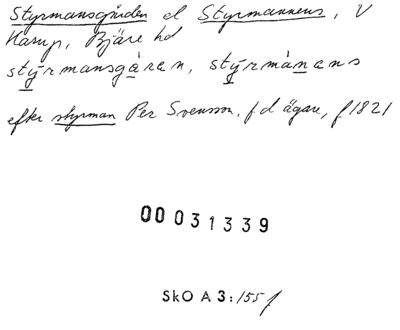 Styrmansgården el Styrmannens, V
Karup, Bjäre hd
stỳrmansgåren, stỳrmànens
efter styrman Per Svensson, f d ägare, f 1821
00 031339
SkO A 3:155 f